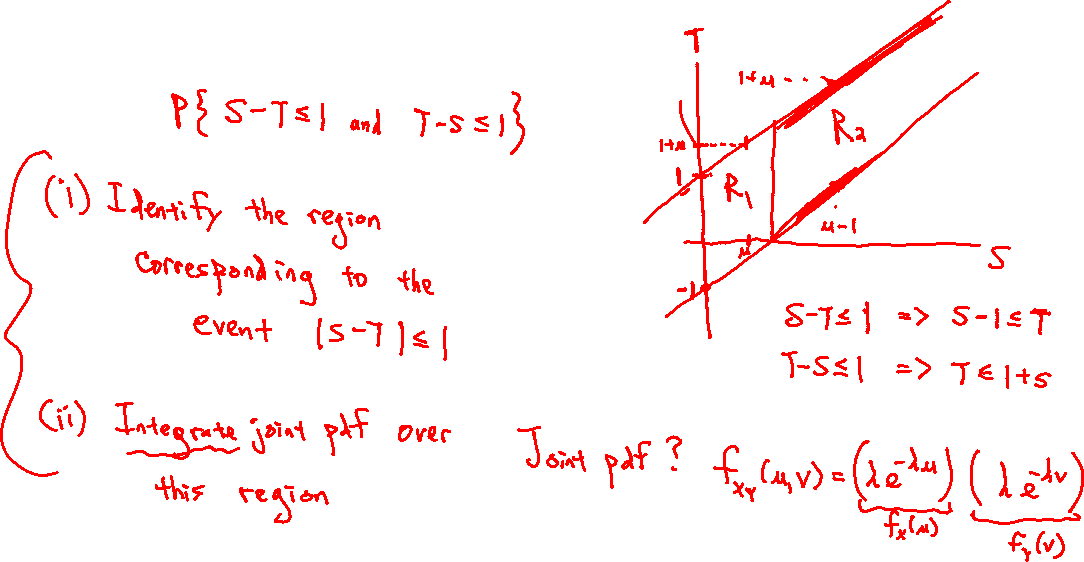 P{ S-T≤1 and T-S≤1}
(i) Identify the region
corresponding to the
event |S-T|≤1
(ii) Integrate joint pdf over
this region
T
1+u
1+u
1
R1
R2
u
u-1
S
-1
S-T≤1 => S-1≤T
T-S≤1 => T≤1+s
Joint pdf? f_XY(u,v) = (λe^-λu) (λe^-λv)
f_X(u) f_Y(v)